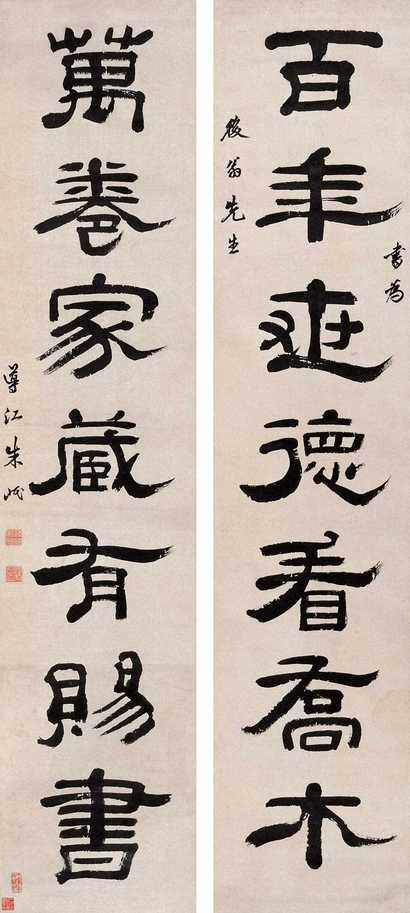 百年德看喬木
書為
後翁先生
萬卷家藏有賜書
導江朱岷